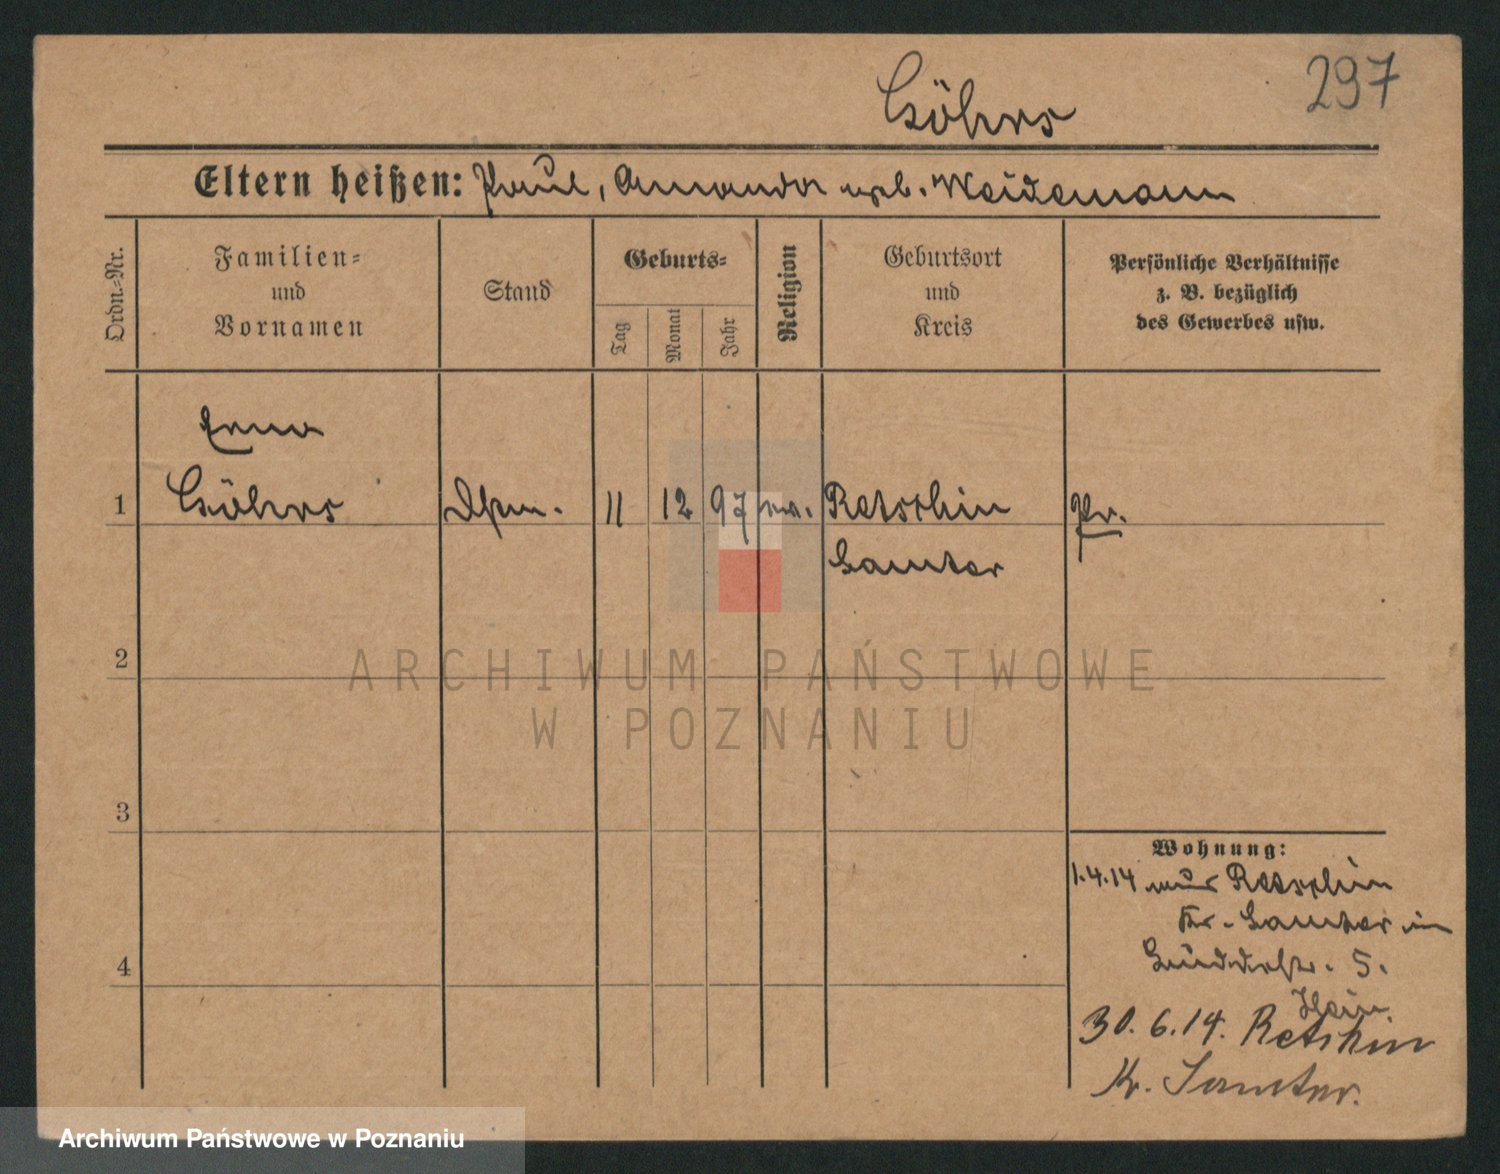 297
Göhrs
Eltern heißen: Paul, Amanda geb. Weidemann
Ordn.-Nr.
Familien-
und
Vornamen
Stand
Geburts-
Tag
Monat
Jahr
Religion
Geburtsort
und
Kreis
Persönliche Verhältnisse
z. B. bezüglich
des Gewerbes usw.
Erna
1 Göhrs 11 12 97 ev. Retschin Pr.
Samter
2
ARCHIWUM PAŃSTWOWE
W POZNANIU
3
Wohnung:
1.4.14 aus Retschin
Kr. Samter in
5.
4
30.6.14. Retschin
Kr. Samter.
Archiwum Państwowe w Poznaniu